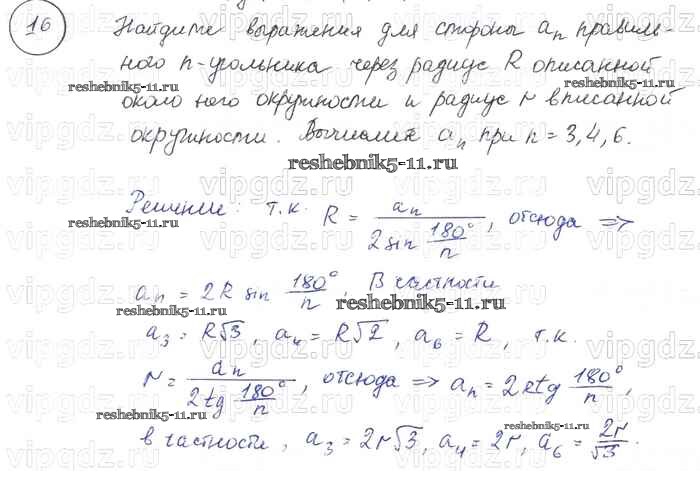 16 Найдите выражения для стороны aₙ правиль-
ного n-угольника через радиус R описанной
reshebnik5-11.ru
около него окружности и радиус r вписанной
окружности. Вычислите aₙ при n = 3, 4, 6.
reshebnik5-11.ru
Решение: т.к. R = aₙ / (2 sin 180°/n), отсюда ⇒
reshebnik5-11.ru
aₙ = 2R sin 180°/n. В частности
reshebnik5-11.ru
a₃ = R√3, a₄ = R√2, a₆ = R, т.к.
r = aₙ / (2 tg 180°/n), отсюда ⇒ aₙ = 2r tg 180°/n,
reshebnik5-11.ru
reshebnik5-11.ru
в частности, a₃ = 2r√3, a₄ = 2r, a₆ = 2r/√3.